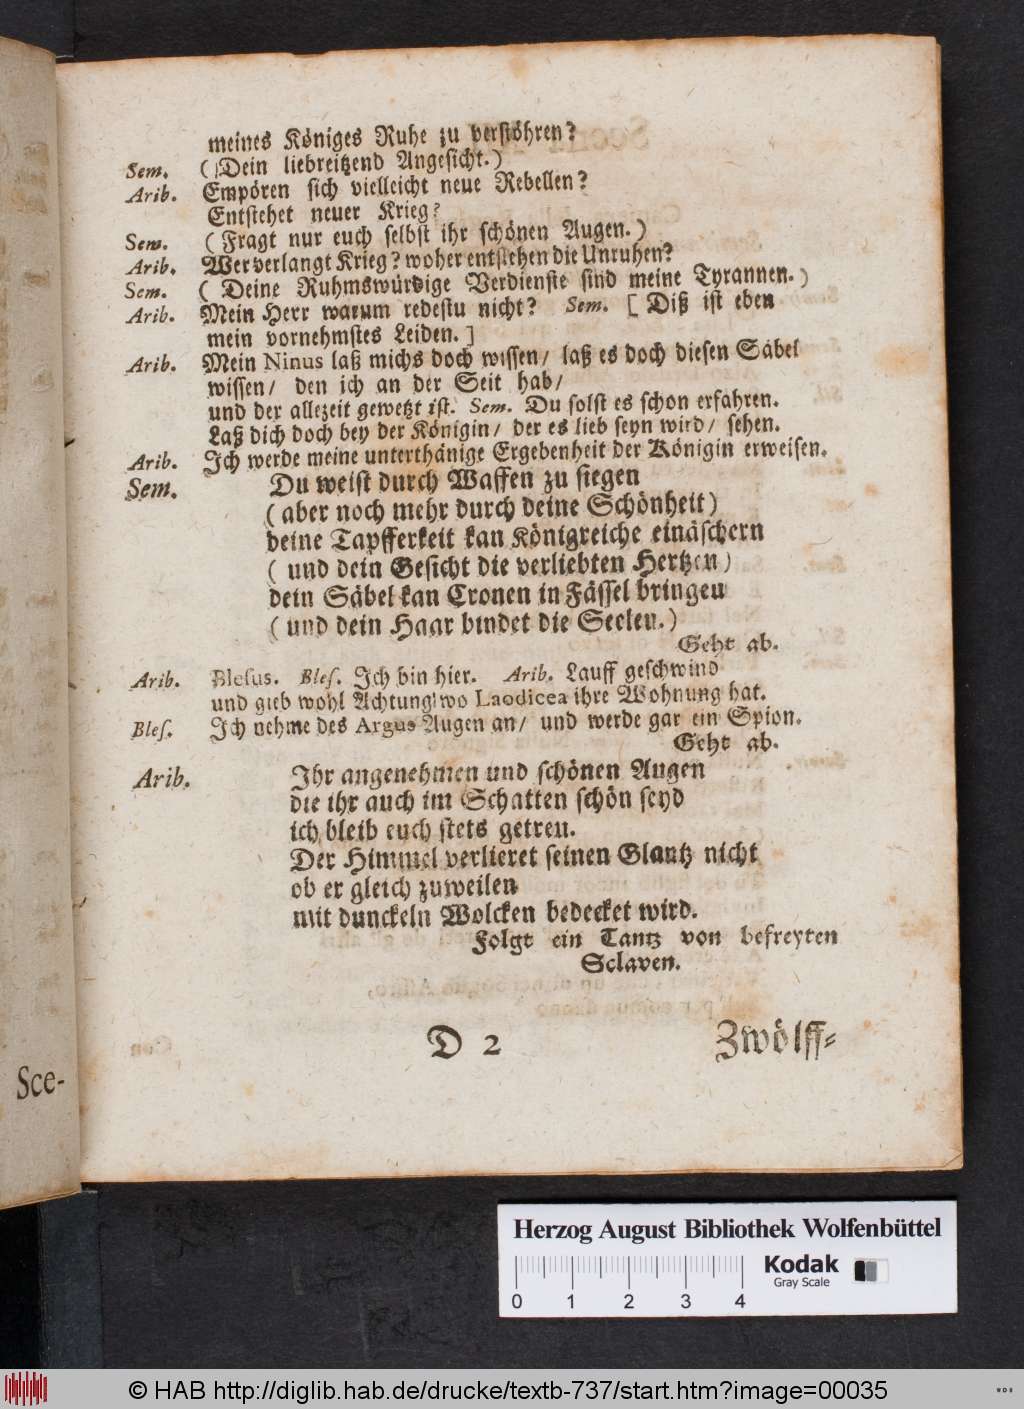 meines Königes Ruhe zu verstöhren?
Sem. (Dein liebreitzend Angesicht.)
Arib. Empören sich vielleicht neue Rebellen?
Entstehet neuer Krieg?
Sem. (Fragt nur euch selbst ihr schönen Augen.)
Arib. Wer verlangt Krieg? woher entstehen die Unruhen?
Sem. (Deine Ruhmswürdige Verdienste sind meine Tyrannen.)
Arib. Mein Herr warum redestu nicht? Sem. [Diß ist eben
mein vornehmstes Leiden.]
Arib. Mein Ninus laß michs doch wissen/ laß es doch diesen Säbel
wissen/ den ich an der Seit hab/
und der allezeit gewetzt ist. Sem. Du solst es schon erfahren.
Laß dich doch bey der Königin/ der es lieb seyn wird/ sehen.
Arib. Ich werde meine unterthänige Ergebenheit der Königin erweisen.
Sem. Du weist durch Waffen zu siegen
(aber noch mehr durch deine Schönheit)
deine Tapfferkeit kan Königreiche einäschern
(und dein Gesicht die verliebten Hertzen)
dein Säbel kan Cronen in Fässel bringen
(und dein Haar bindet die Seelen.)
Geht ab.
Arib. Blesus. Bles. Ich bin hier. Arib. Lauff geschwind
und gieb wohl Achtung wo Laodicea ihre Wohnung hat.
Bles. Ich nehme des Argus Augen an/ und werde gar ein Spion.
Geht ab.
Arib. Ihr angenehmen und schönen Augen
die ihr auch im Schatten schön seyd
ich bleib euch stets getreu.
Der Himmel verlieret seinen Glantz nicht
ob er gleich zuweilen
mit dunckeln Wolcken bedecket wird.
Folgt ein Tantz von befreyten
Sclaven.
D 2 Zwölff-
Sce-
Herzog August Bibliothek Wolfenbüttel
0 1 2 3 4
Kodak
Gray Scale
© HAB http://diglib.hab.de/drucke/textb-737/start.htm?image=00035